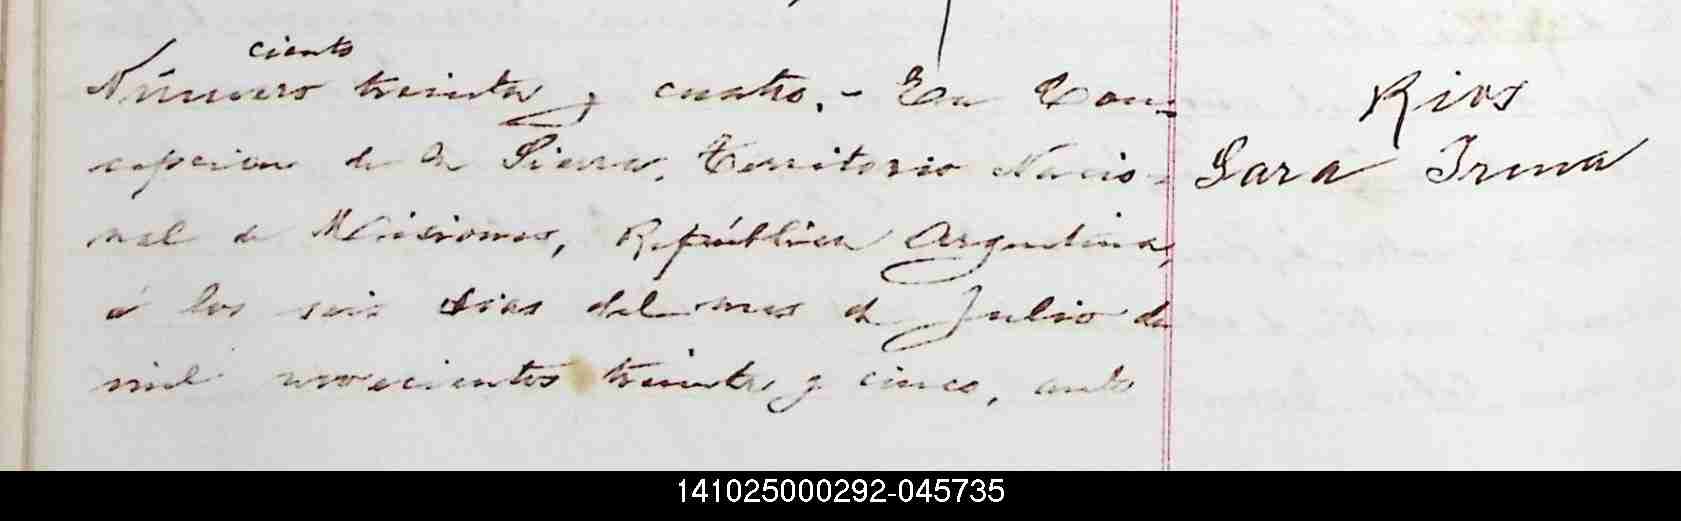 ciento
Número treinta y cuatro.- En Con-
cepcion de la Sierra, Territorio Nacio-
nal de Misiones, República Argentina,
á los seis dias del mes de Julio de
mil novecientos treinta y cinco, ante
Rios
Sara Irma
141025000292-045735